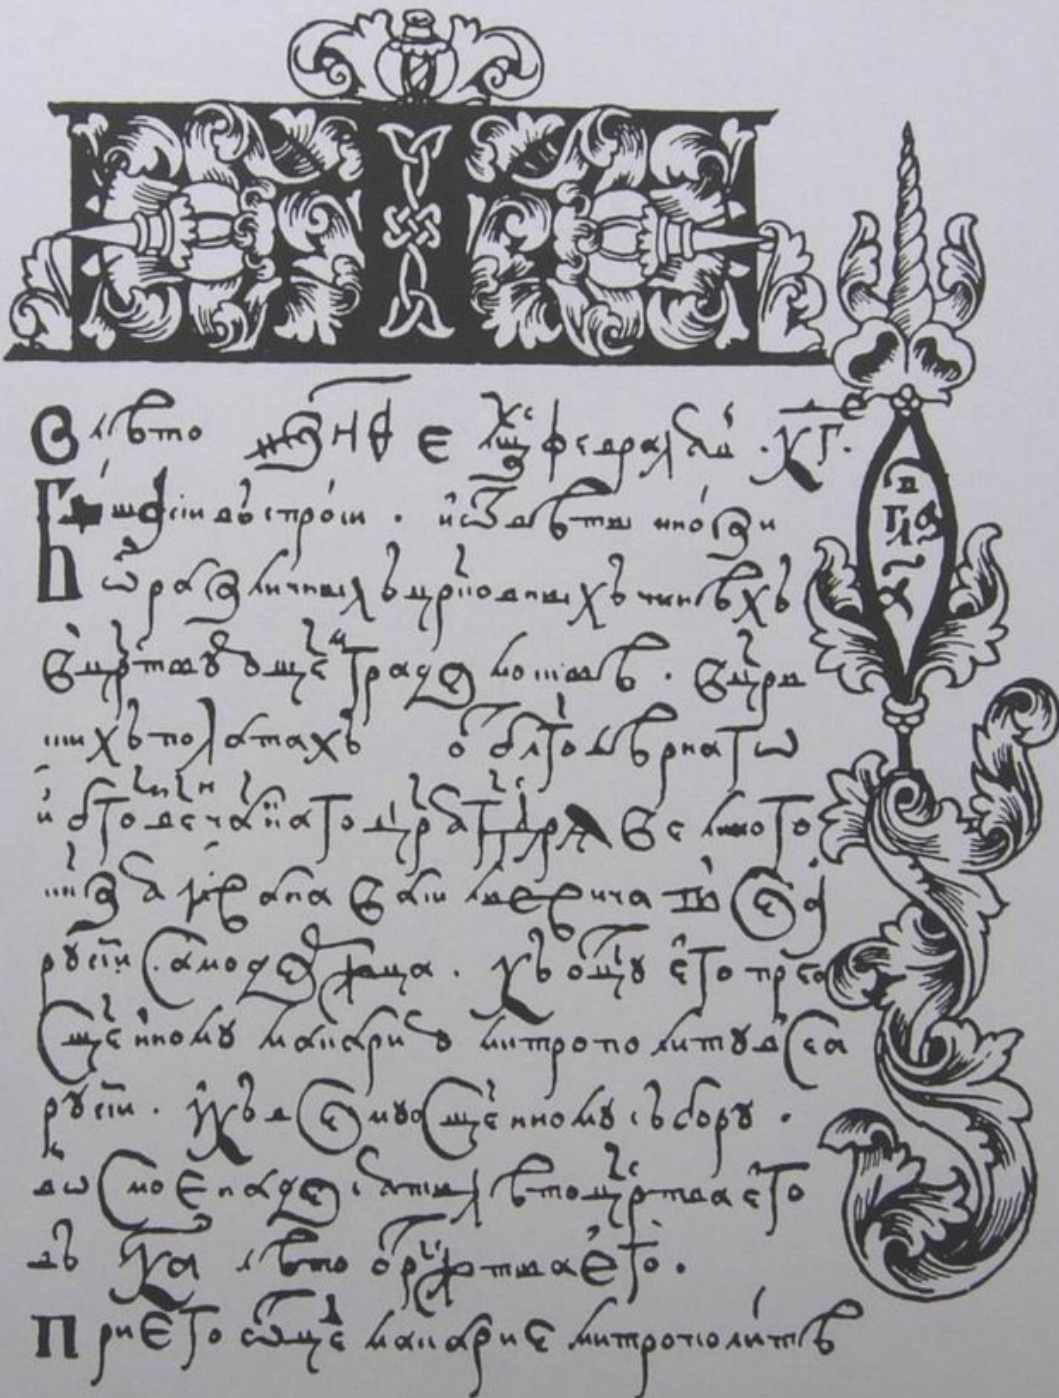 В лѣто ҂ЗНѲ е мс̑ца февраля в̾ КГ.
Быша сїи въпроси. и ѿвѣты мнози
ѡ различныхъ црковныхъ чинѣхъ
в црьтвующем граде москвѣ. в црь
скихъ полатахъ от блговѣрнаго
и бговенчаннаго цря гдря великого
кнзя ивана васильевича всея
русїи самодержца. къ отцу его прео
сщенному макарию митрополиту всеа
русїи. и къ всему сщенному събору.
во смоенадесять лѣто црьтва его
въ ка лѣто от рожтва его.
При его отце макарие митрополитѣ
глав
а